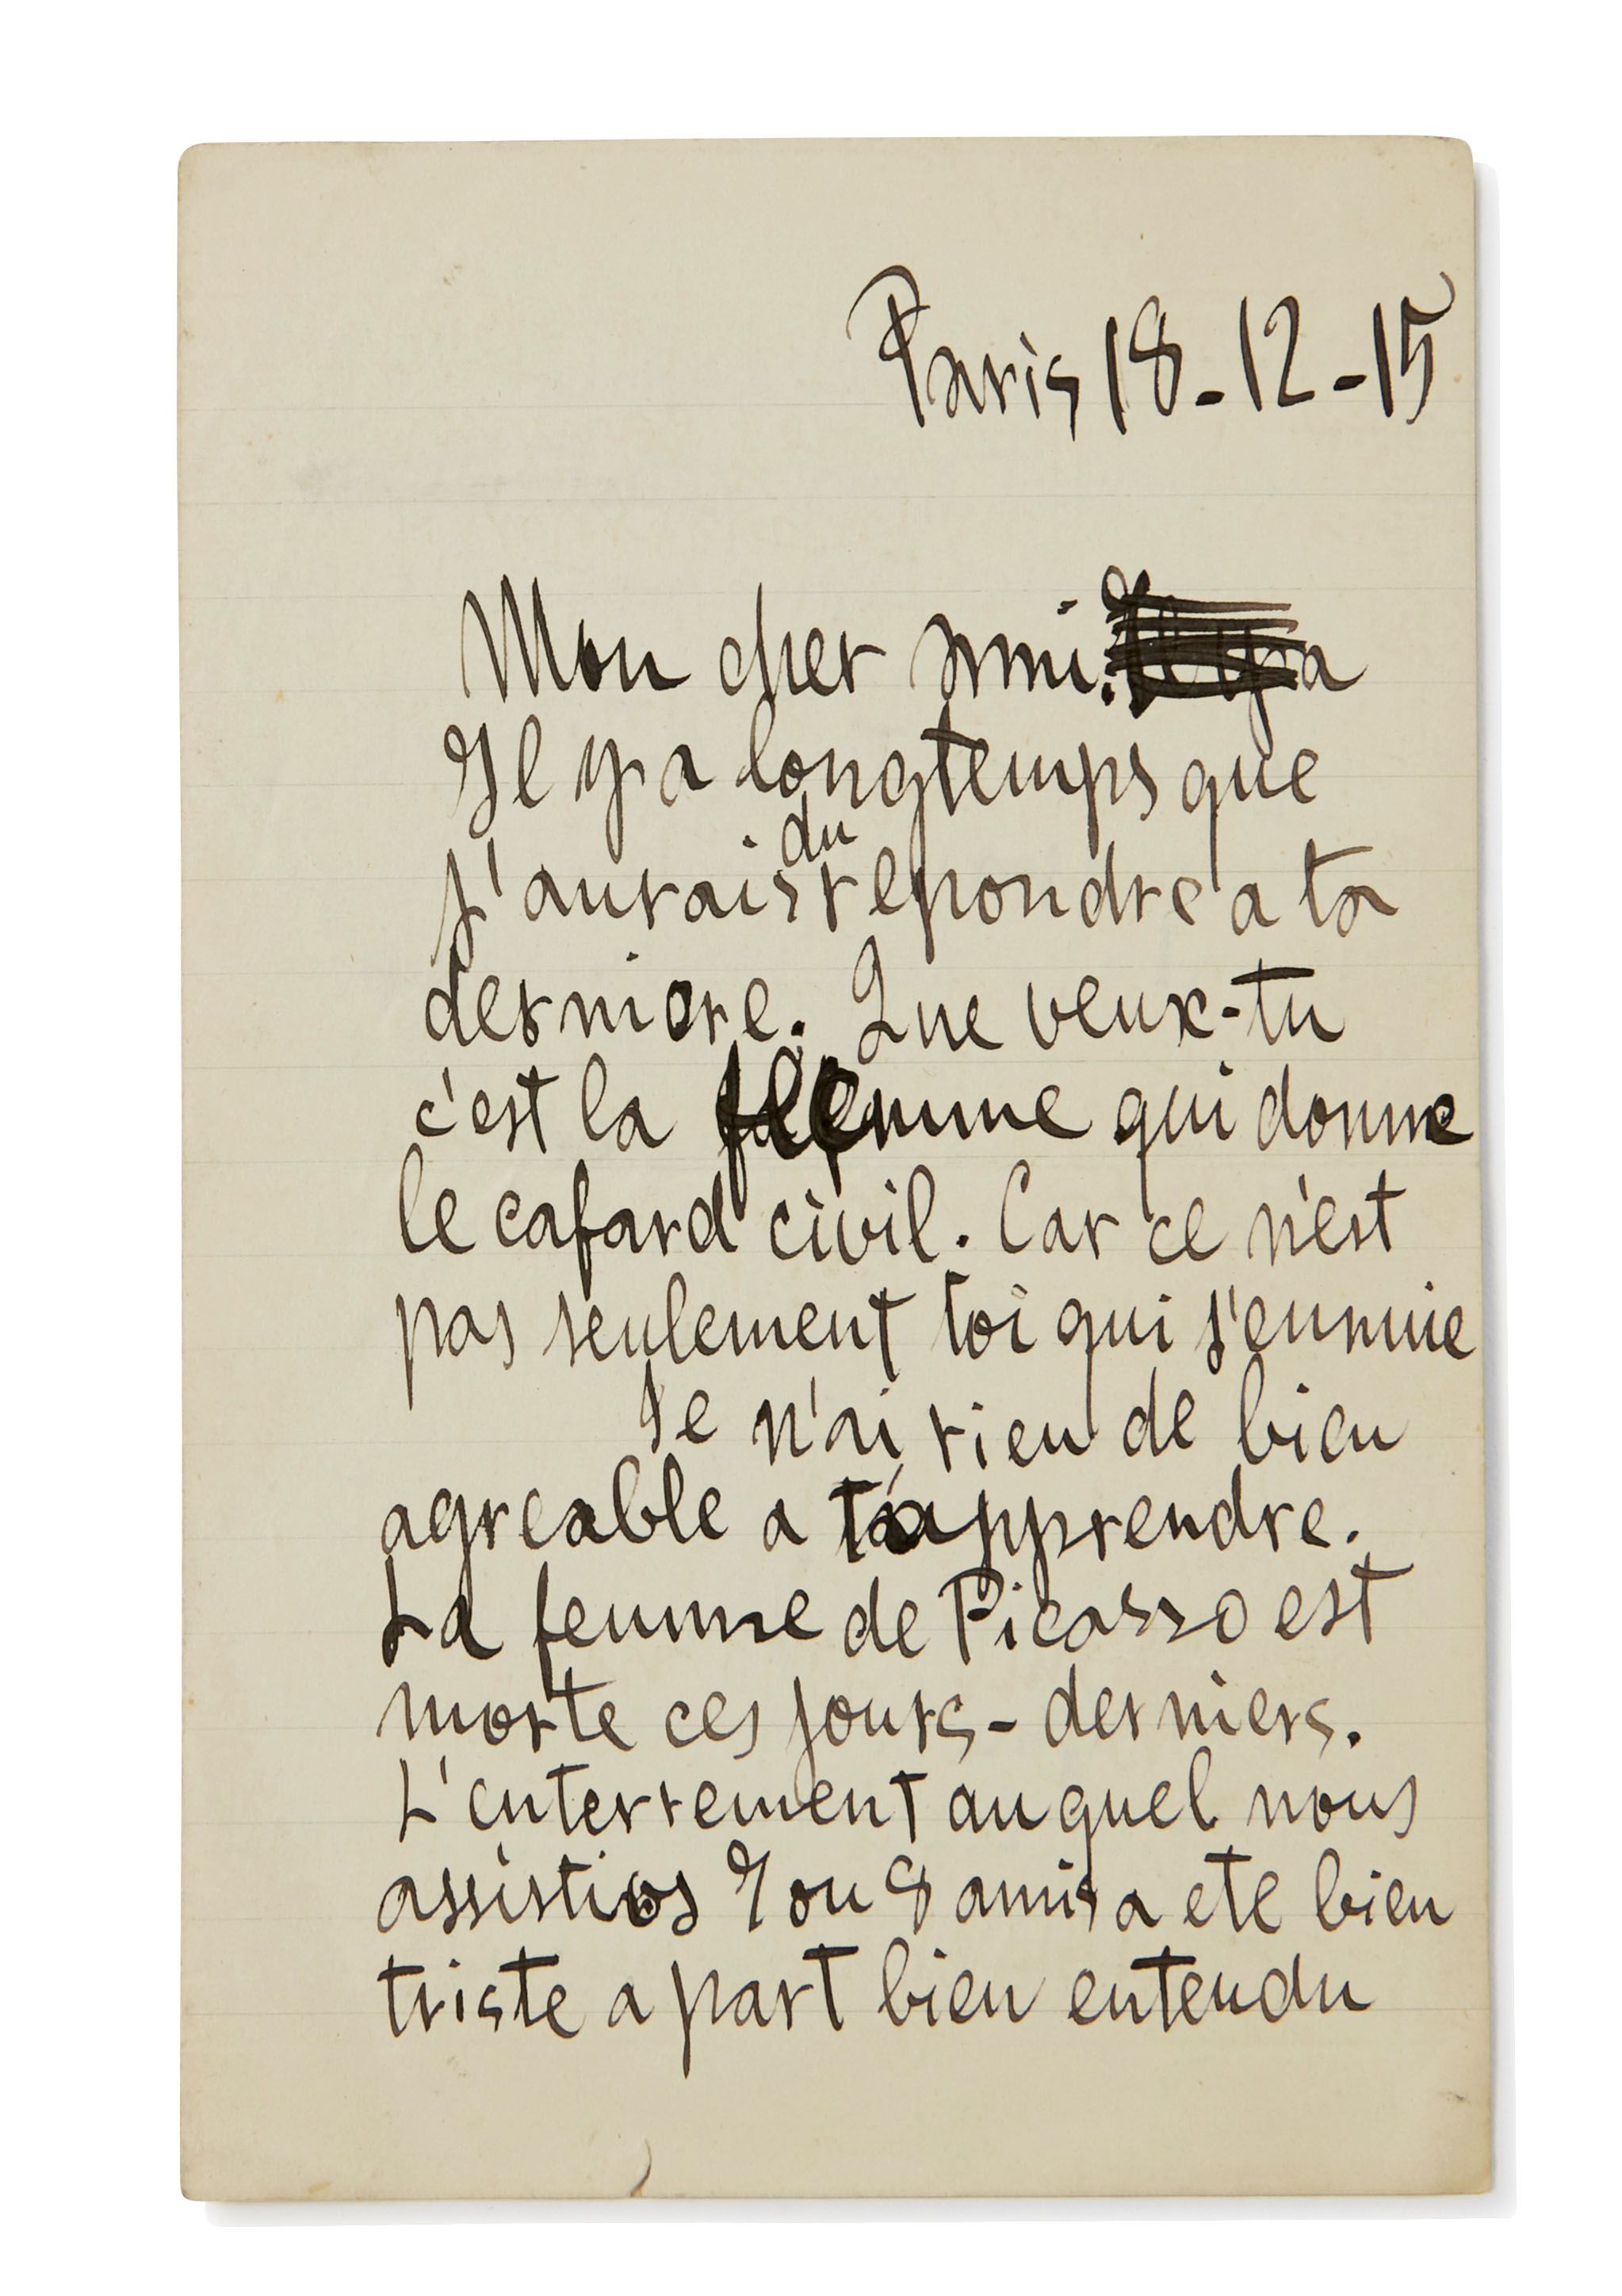 Paris 18-12-15
Mon cher ami. Il y a
Il y a longtemps que
du
j'aurais repondre a ta
derniere. Que veux-tu
c'est la flemme qui donne
le cafard civil. Car ce n'est
pas seulement toi qui s'ennuie
Je n'ai rien de bien
agreable a t'apprendre.
La femme de Picasso est
morte ces jours-derniers.
L'enterrement auquel nous
assistios 7 ou 8 amis a ete bien
triste a part bien entendu